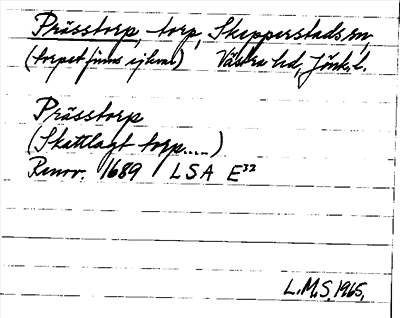 Prässtorp, torp, Skepperstads sn,
(torpet finns ej kvar) Västra hd, Jönk. l.
Prässtorp
(Skattlagt torp.....)
Renov. 1689 LSA E³²
L.M.S. 1965.